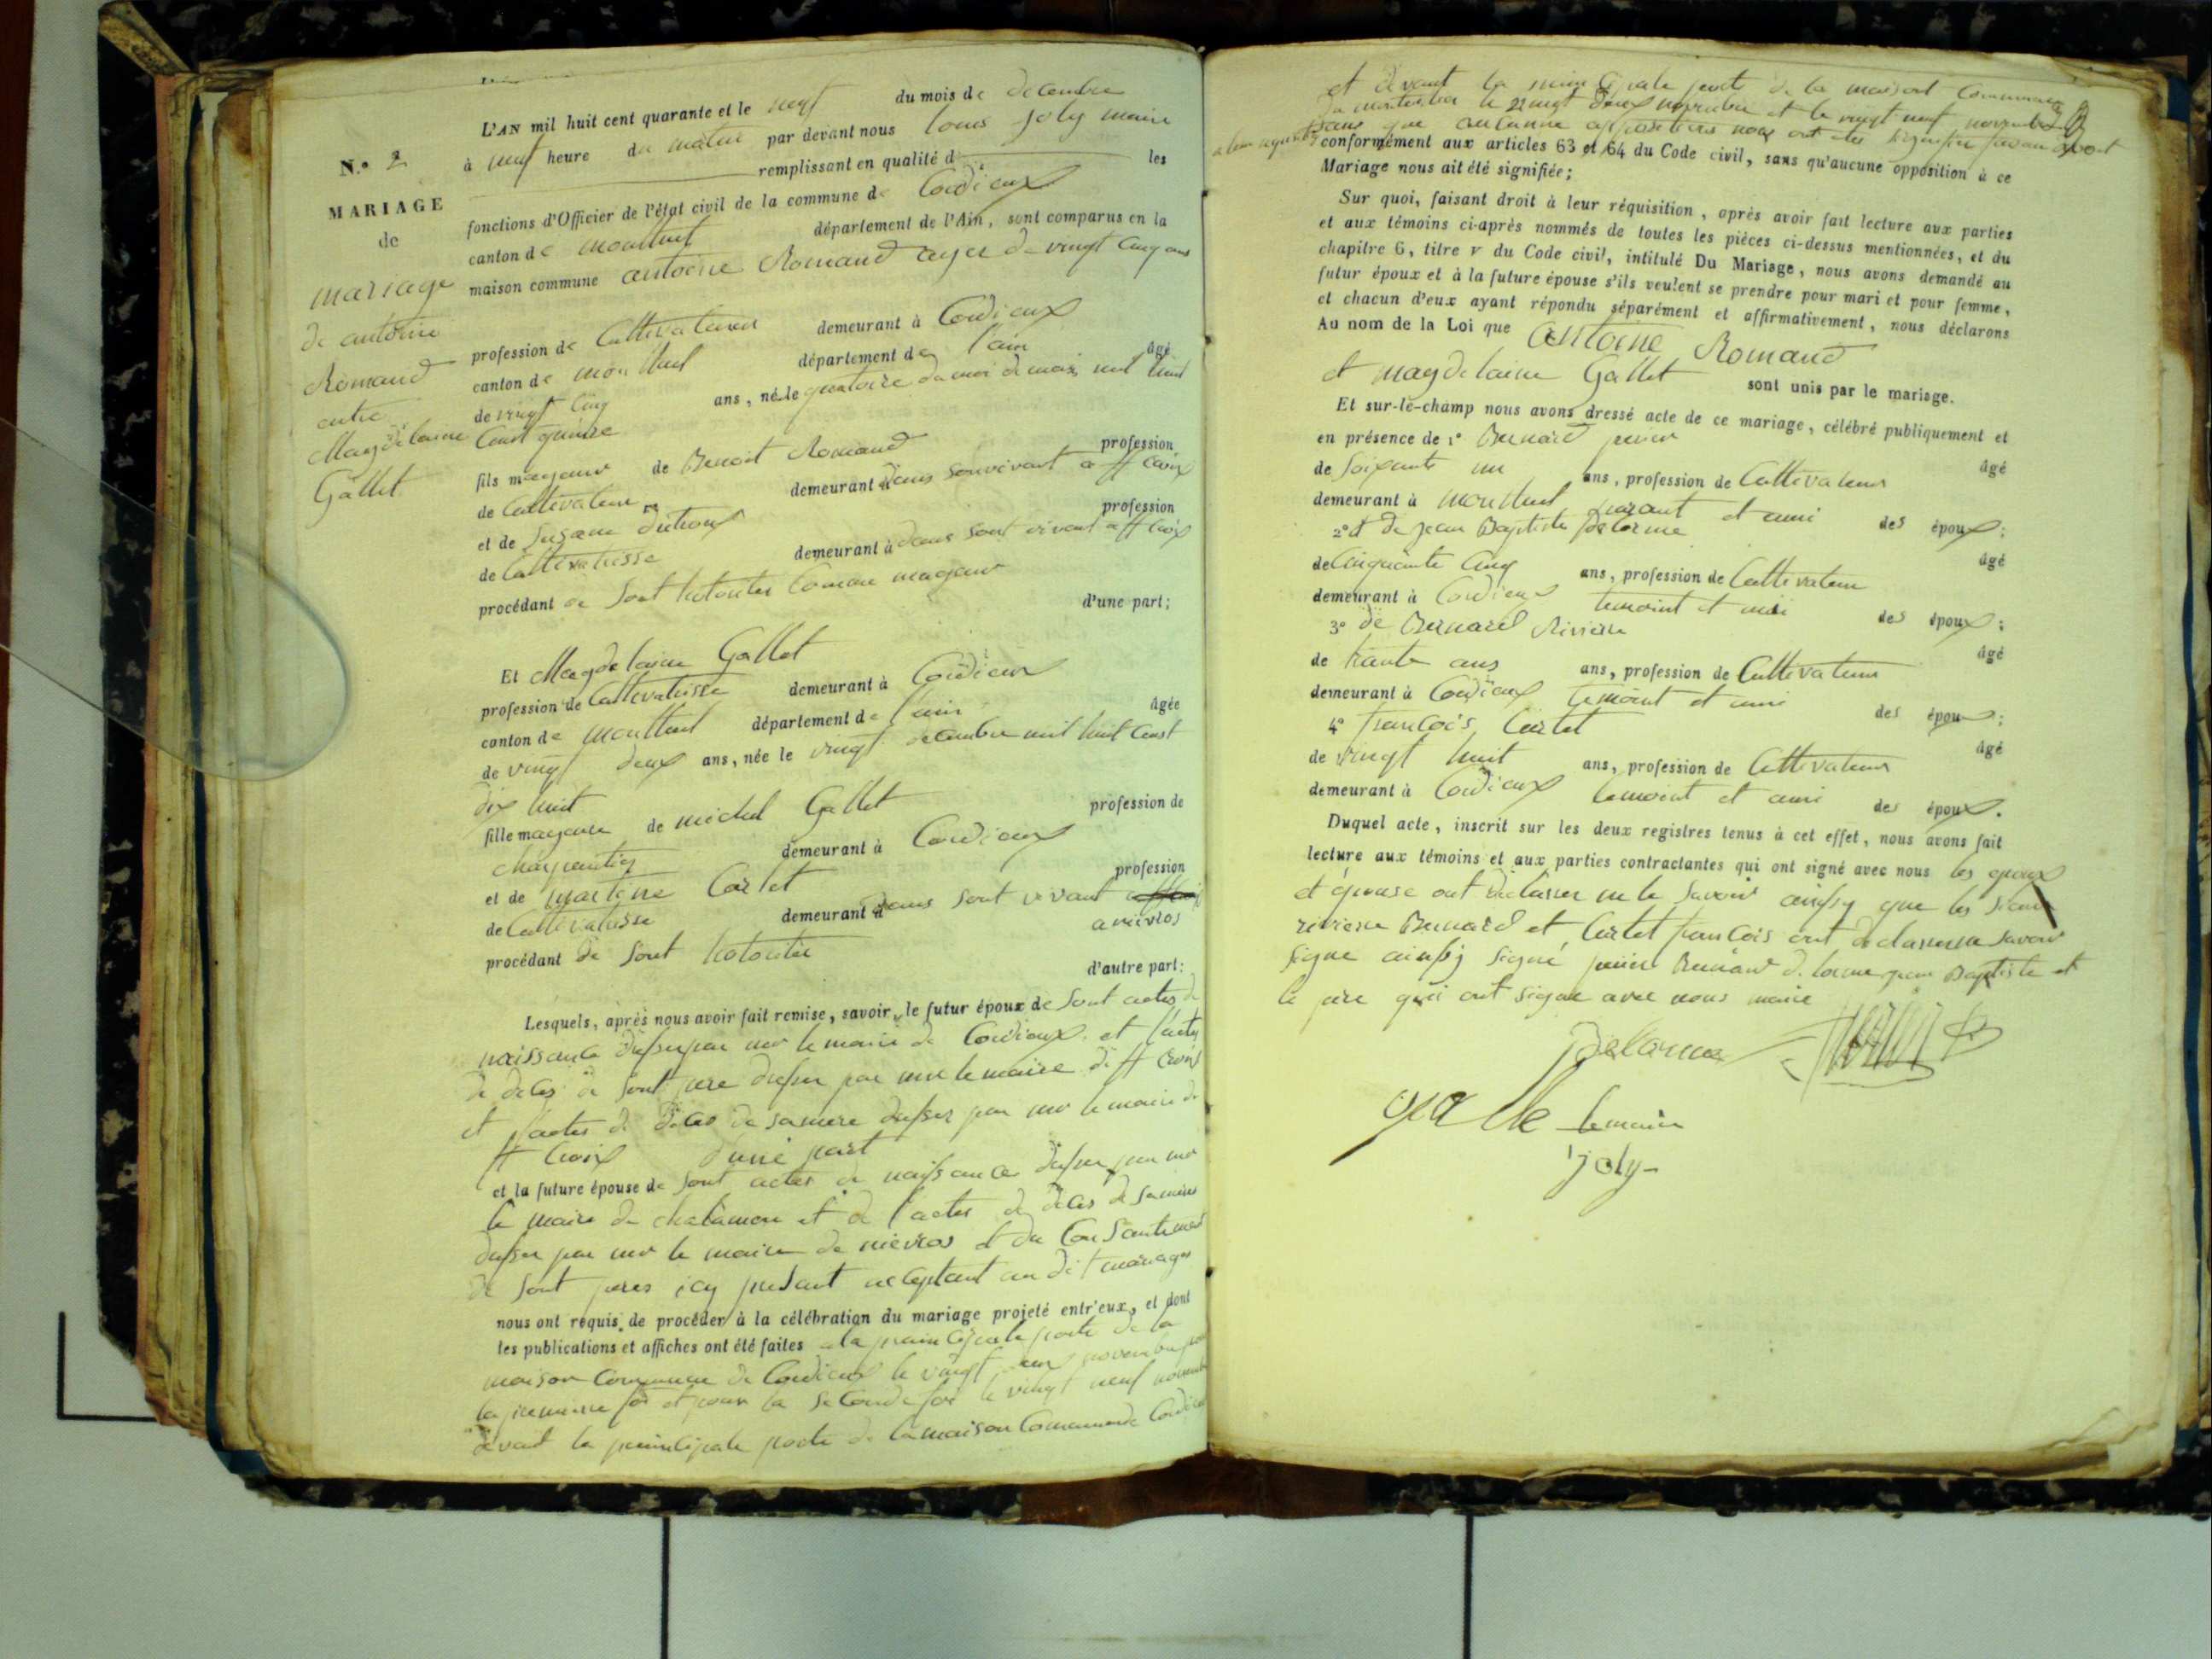 L'AN mil huit cent quarante et le neuf du mois de decembre
à neuf heure du matin par devant nous louis joly maire
remplissant en qualité d les
fonctions d'Officier de l'état civil de la commune de Cordieux
canton de montluel département de l'Ain, sont comparus en la
maison commune antoine Romand ager de vingt cinq ans
profession de Cultivateur demeurant à Cordieux
canton de montluel département de l'ain âgé
de vingt cinq ans, né le quatorze du moi de mars mil huit
Cent quinze
fils majeur de Benoit Romand profession
de Cultivateur demeurant dans son vivant a st Croix
et de Suzane profession
de Cultivatrisse demeurant à dans sont vivant a st Croix
procédant de sont comme majeur
d'une part;
N.° 2
MARIAGE
de
mariage
de antoine
Romand
entre
Magdelaine
Gallet
Et Magdelaine Gallet
profession de Cultivatrisse demeurant à Cordieux
canton de montluel département de l'ain âgée
de vingt deux ans, née le vingt decembre mil huit Cent
dix huit
fille majeure de michel Gallet profession de
charpentier demeurant à Cordieux
et de Cartet profession
de Cultivatrisse demeurant à dans sont vivant
a nievros
procédant de sont
d'autre part:
Lesquels, après nous avoir fait remise, savoir, le futur époux de sont actes de
naissance dresser par mr le maire de Cordieux et l'acte
de deces de sont pere dresser par mr le maire de st Croix
et l'actes de deces de sa mere dresser par mr le maire de
st Croix d'une part
et la future épouse de sont actes de naissance dresser par mr
le maire de chalamon et de l'actes de deces de sa mere
dresser par mr le maire de nievros et du Consantement
de sont peres icy presant acceptant au dit mariage
nous ont requis de procéder à la célébration du mariage projeté entr'eux, et dont
les publications et affiches ont été faites a la principale porte de la
maison Commune de Cordieux le vingt deux novembre pour
la premiere foi et pour la seconde foi le vingt neuf novembre
devant la principale porte de la maison Commune de Cordieux
et devant la principale porte de la maison Commune
le vingt deux novembre et le vingt neuf novembre
sans que aucunne oppositions nous ont etes
conformément aux articles 63 et 64 du Code civil, sans qu'aucune opposition à ce
Mariage nous ait été signifiée;
Sur quoi, faisant droit à leur réquisition, après avoir fait lecture aux parties
et aux témoins ci-après nommés de toutes les pièces ci-dessus mentionnées, et du
chapitre 6, titre v du Code civil, intitulé Du Mariage, nous avons demandé au
futur époux et à la future épouse s'ils veulent se prendre pour mari et pour femme,
et chacun d'eux ayant répondu séparément et affirmativement, nous déclarons
Au nom de la Loi que antoine Romand
et magdelaine Gallet sont unis par le mariage.
Et sur-le-champ nous avons dressé acte de ce mariage, célébré publiquement et
en présence de 1° Bernard âgé
de soixante un ans, profession de Cultivateur
demeurant à montluel parant et ami des époux;
2° et de jean Baptiste Delorme âgé
de Cinquante Cinq ans, profession de Cultivateur
demeurant à Cordieux temoint et ami des époux;
3° de Bernard Riviere âgé
de trante ans ans, profession de Cultivateur
demeurant à Cordieux temoint et ami des époux;
4° francois Cartet âgé
de vingt huit ans, profession de Cultivateur
demeurant à Cordieux temoint et ami des époux.
Duquel acte, inscrit sur les deux registres tenus à cet effet, nous avons fait
lecture aux témoins et aux parties contractantes qui ont signé avec nous les epoux
et épouse ont declarer ne le savoir ainssy que les sieurs
riviere Bernard et Cartet francois ont declarer ne savoir
signe ainssy signé Bernard delorme jean Baptiste et
le pere qui ont signe avec nous maire
Delorme
le maire
joly